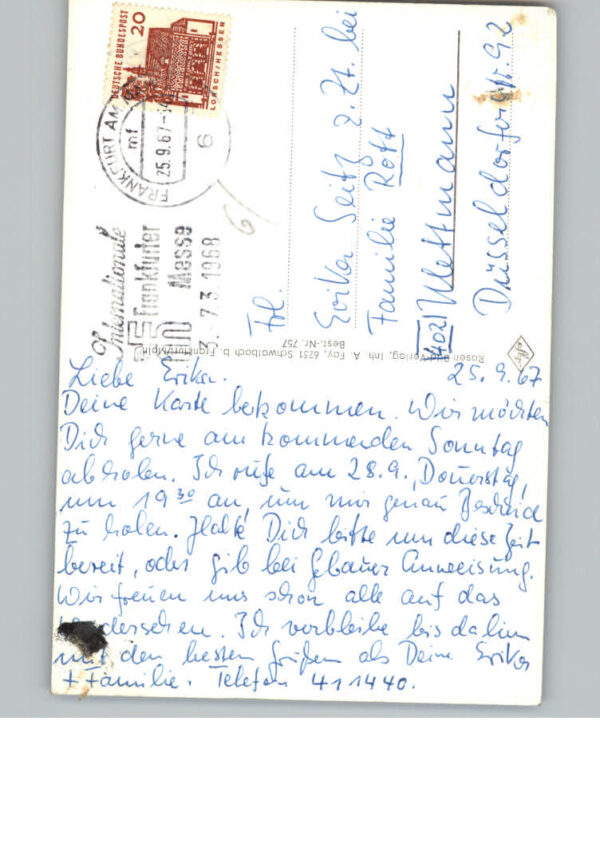 DEUTSCHE BUNDESPOST
20
LORSCH/HESSEN
FRANKFURT AM
mf
25.9.67-
6
Internationale
Frankfurter
Messe
3.-7.3.1968
6
Frl.
Erika Seitz z. Zt. bei
Familie Rott
4021 Mettmann
Düsseldorferstr. 92
Rosen-Bild-Verlag, Inh. A. Fay, 6231 Schwalbach b. Frankfurt/Main
Best.-Nr. 757
25.9.67
Liebe Erika.
Deine Karte bekommen. Wir möchten
Dich gerne am kommenden Sonntag
abholen. Ich rufe am 28.9., Donerstag,
um 19³⁰ an, um mir genau Bescheid
zu holen. Halte Dich bitte um diese Zeit
bereit, oder gib bei Gebauer Anweisung.
Wir freuen uns schon alle auf das
Wiedersehen. Ich verbleibe bis dahin
mit den besten Grüßen als Deine Erika
+ Familie. Telefon 411440.